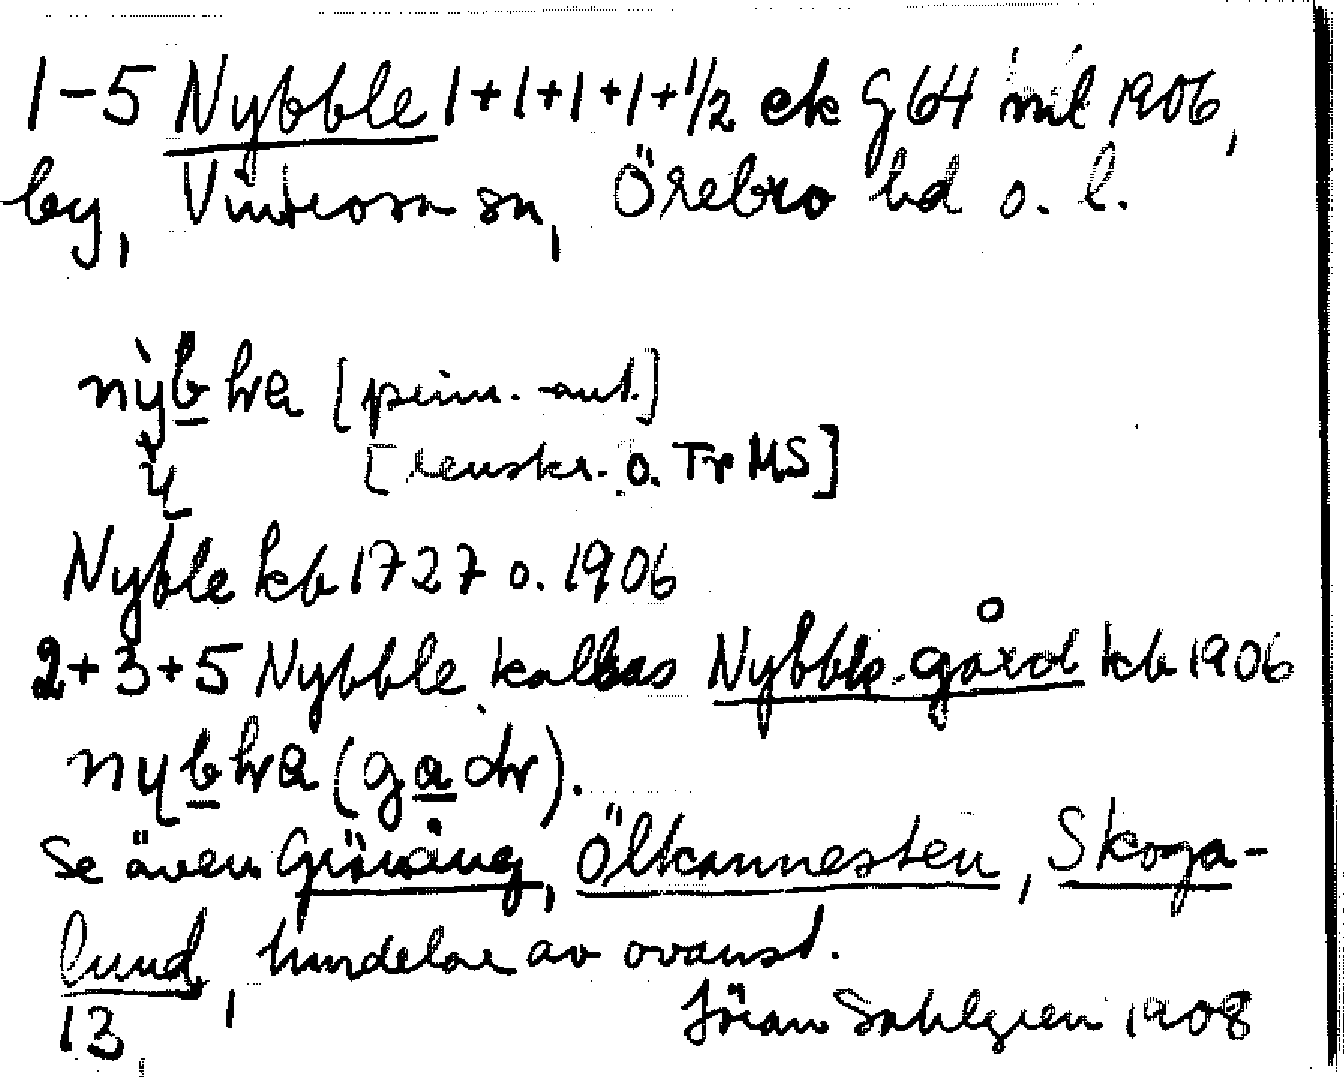 1-5 Nybble 1+1+1+1+1/2 ek G 64 mtl 1906,
by, Vintrosa sn, Örebro hd o. l.
nỳb̲ ła [prim. -ant.]
y [renskr. o. Tr MS]
Nyble kb 1727 o. 1906
2+3+5 Nybble kallas Nybble-gård kb 1906
nyb̲ (ga̲ ).
Se även Grönäng, Ölkannesten, Skoga-
lund, hmdelar av ovanst.
13 Jöran Sahlgren 1908